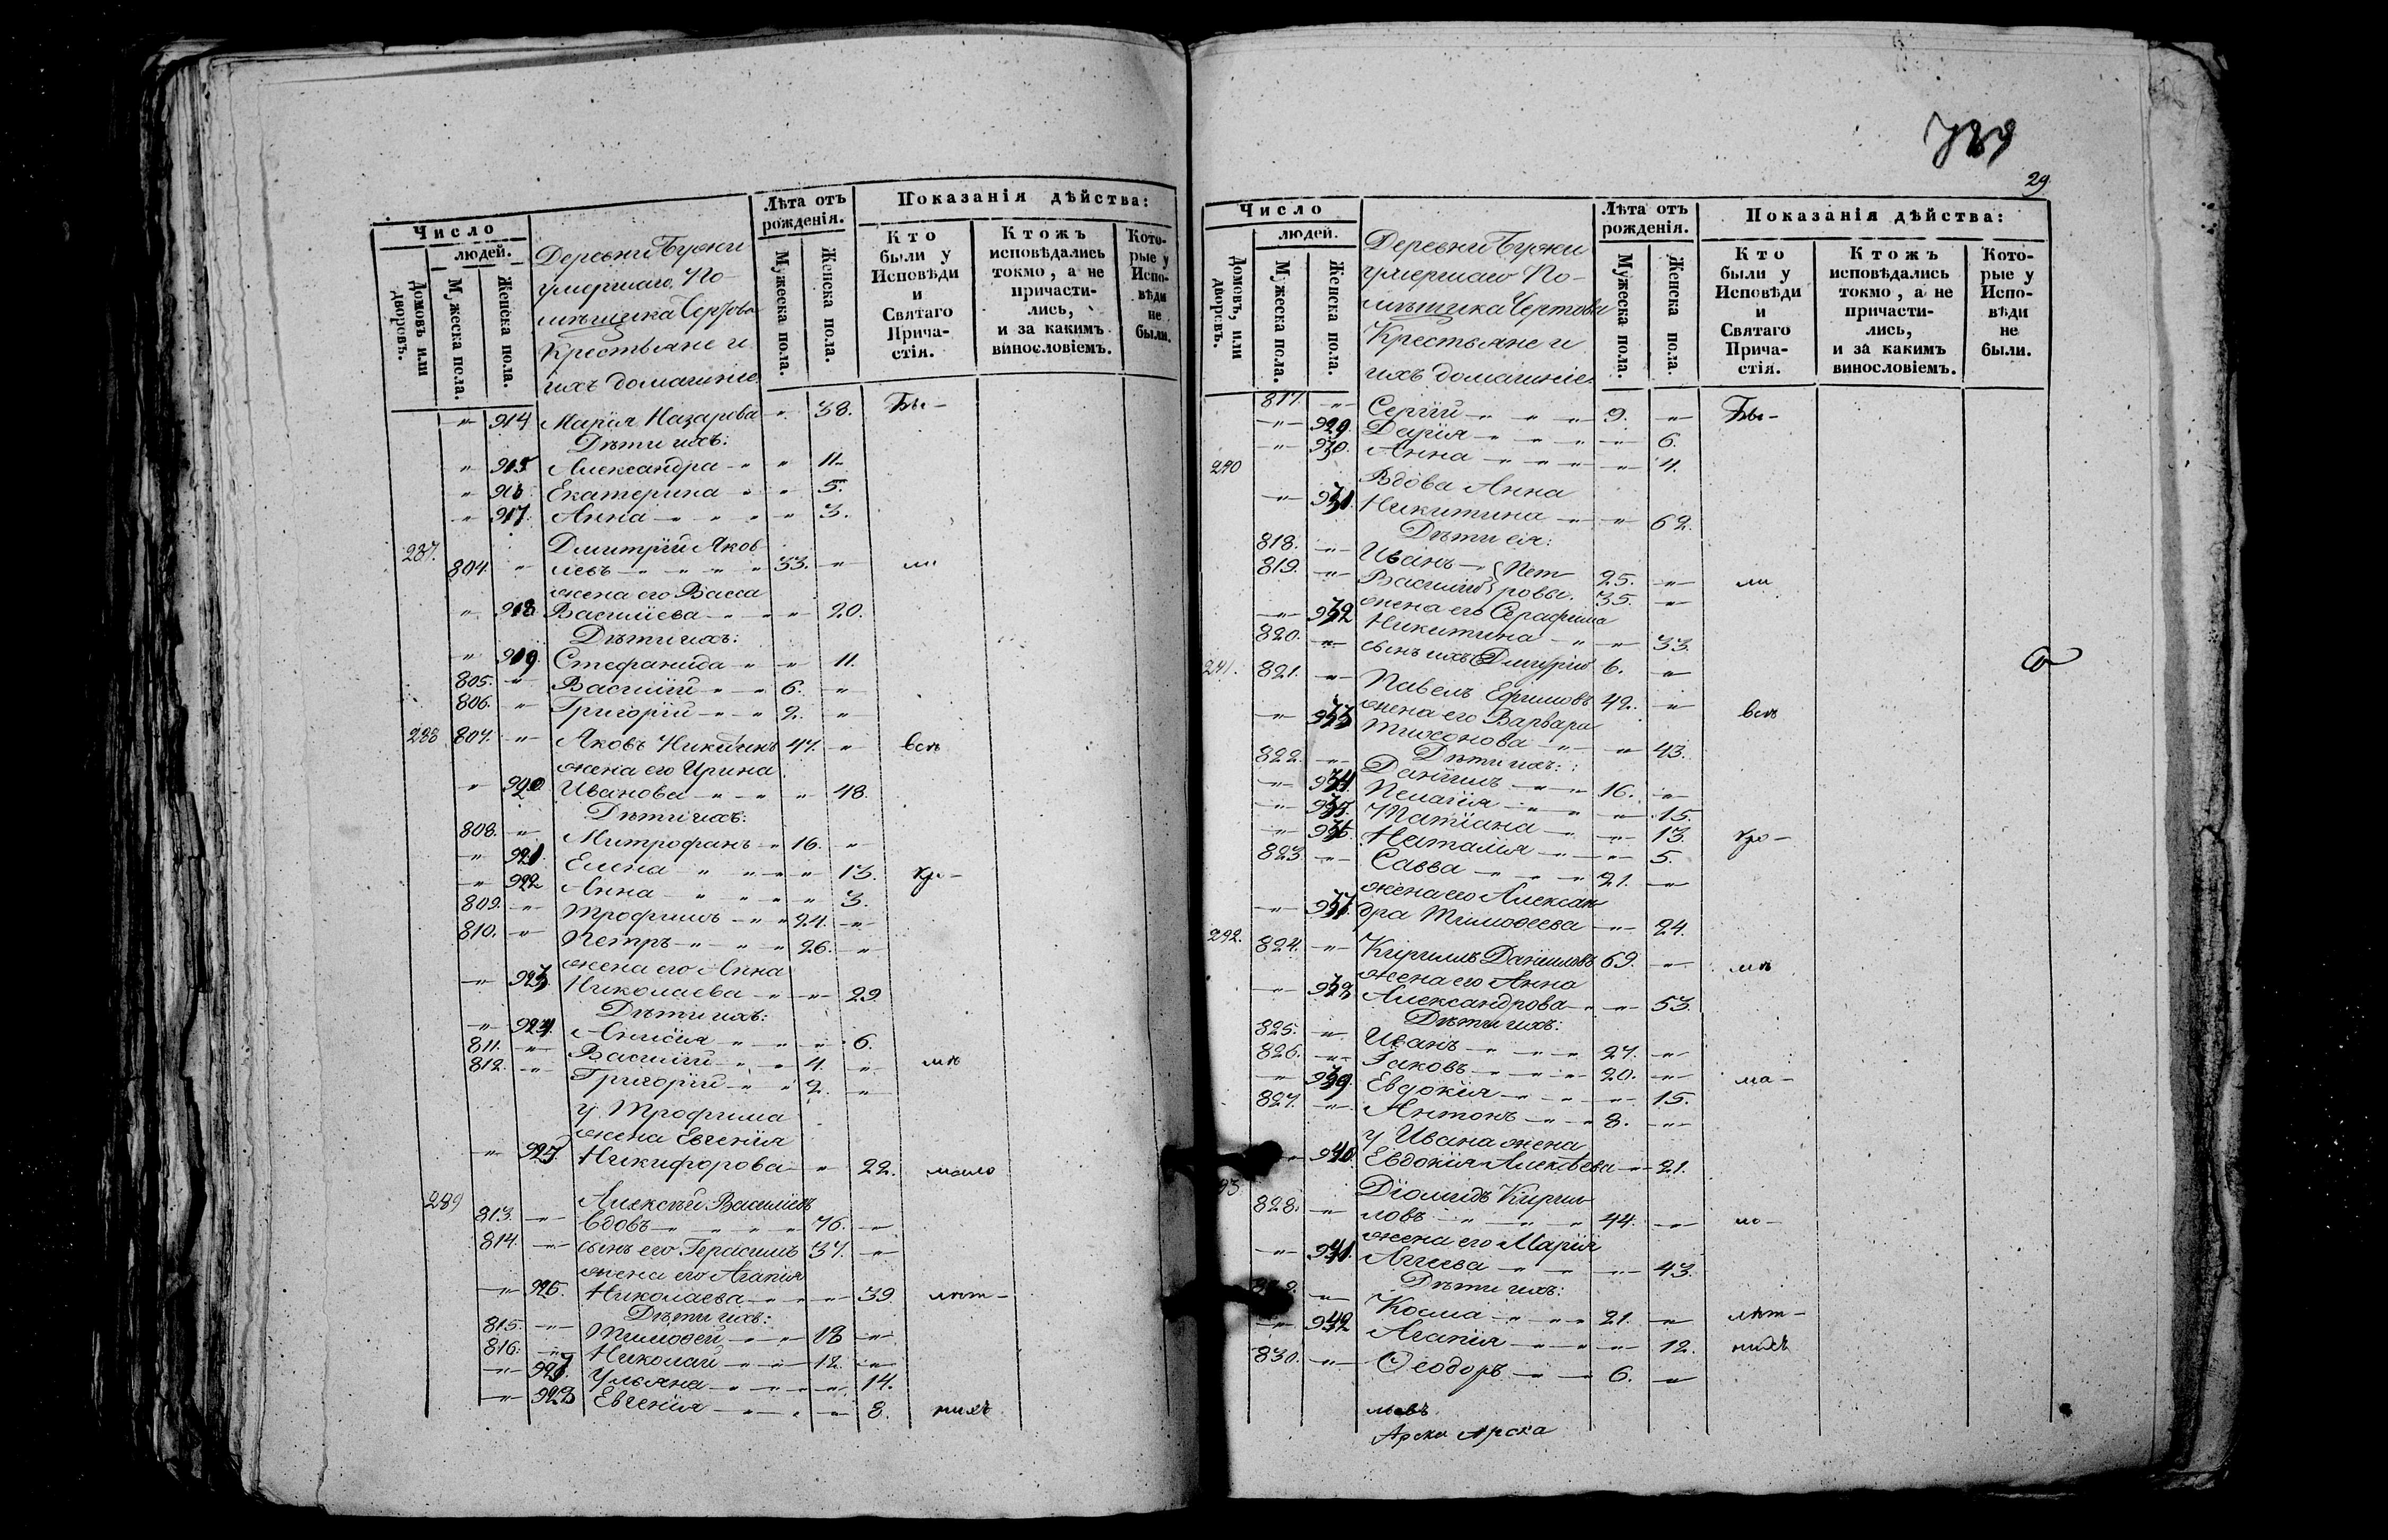 Число
людей.
Домовъ или дворовъ.
Мужеска пола.
Женска пола.
Деревни
умершаго По-
мѣщика Чертова
Крестьяне и
ихъ домашніе.
Лѣта отъ рожденія.
Мужеска пола.
Женска пола.
Показанія дѣйства:
Кто были у Исповѣди и Святаго Прича- стія.
Ктожъ исповѣдались токмо, а не причасти- лись, и за какимъ винословіемъ.
Кото- рые у Испо- вѣди не были.
" 914 Марія Назарова " 38. Бы-
Дѣти ихъ:
" 915 Александра " " 11.
" 916 Екатерина " " 5.
" 917. Анна " " " " 3.
287. Дмитрій Яков-
804. " левъ " " " " 33. " ли
жена его Васса
" 918 Василіева " " " 20.
Дѣти ихъ:
" 919. Стефанида " " 11.
805. " Василій " " 6. "
806. " Григорій " " 2. "
288 807. " Яковъ Никитинъ 47. " всѣ
жена его Ирина
" 920 Иванова " " " 48.
Дѣти ихъ:
808. " Митрофанъ " 16. "
" 921 Елена " " " " 13. кро-
" 922 Анна " " " " 3.
809. " Трофимъ " " 24. "
810. " Петръ " " " 26. "
жена его Анна
" 923 Николаева " " 29.
Дѣти ихъ:
" 924. Анисія " " " 6.
811. " Василій " " 4. " мѣ
812. " Григорій " " 2. "
у Трофима
жена Евгенія
" 925 Никифорова " 22. мало
289 Алексѣй Василіевъ
813. " вдовъ " " " " 76. "
814. " сынъ его Герасимъ 37. "
жена его Агапія
" 926. Николаева " " " 39. лѣт-
Дѣти ихъ:
815. " Тимоѳей " " 18 "
816. " Николай " " 12. "
" 927. Ульяна " " " " 14.
" 928 Евгенія " " " 8. нихъ
29
Число
людей.
Домовъ, или дворовъ.
Мужеска пола.
Женска пола.
Деревни
умершаго По-
мѣщика Чертова
Крестьяне и
ихъ домашніе.
Лѣта отъ рожденія.
Мужеска пола.
Женска пола.
Показанія дѣйства:
Кто были у Исповѣди и Святаго Прича- стія.
Ктожъ исповѣдались токмо, а не причасти- лись, и за какимъ винословіемъ.
Кото- рые у Испо- вѣди не были.
817. " Сергій " " " 9. " Бы-
" 929 Дарія " " " " 6.
" 930. Анна " " " "
290 Вдова Анна
" 931. Никитина " " 62.
Дѣти ея:
818. " Иванъ Пет- 25. " ли
819. " Василій ровы. 35. "
жена его Серафима
" 932 Никитина " " 33.
820. " сынъ ихъ Дмитрій 6. "
291. 821. " Павелъ Ефимовъ 42. " всѣ
жена его Варвара
" 933 " " 43.
Дѣти ихъ:
822. " Даніилъ " " 16. "
" 934. Пелагія " " " 15.
" 935. Татіана " " 13.
" 936. Наталія " " 5. кро-
823. " Савва " " " 21. "
жена его Алексан-
" 937. дра Тимоѳеева " 24.
292. 824. " Кириллъ Даніиловъ 69. " мѣ
жена его Анна
" 938 Александрова " " 53.
Дѣти ихъ:
825. " Иванъ " " " 27. "
826. " Іаковъ " " " 20. "
" 939. Евдокія " " " 15. ма-
827. " Антонъ " " 8. "
у Ивана жена
940. Евдокія Алексѣева " 21.
93 Діомидъ Кирил-
828. " ловъ " " " 44. " ло-
жена его Марія
" 941. Аггеева " " " 43.
Дѣти ихъ:
" Косма " " " 21. " лѣт-
" 942 Агапія " " " 12. нихъ
830. " Ѳеодоръ " " 6. "